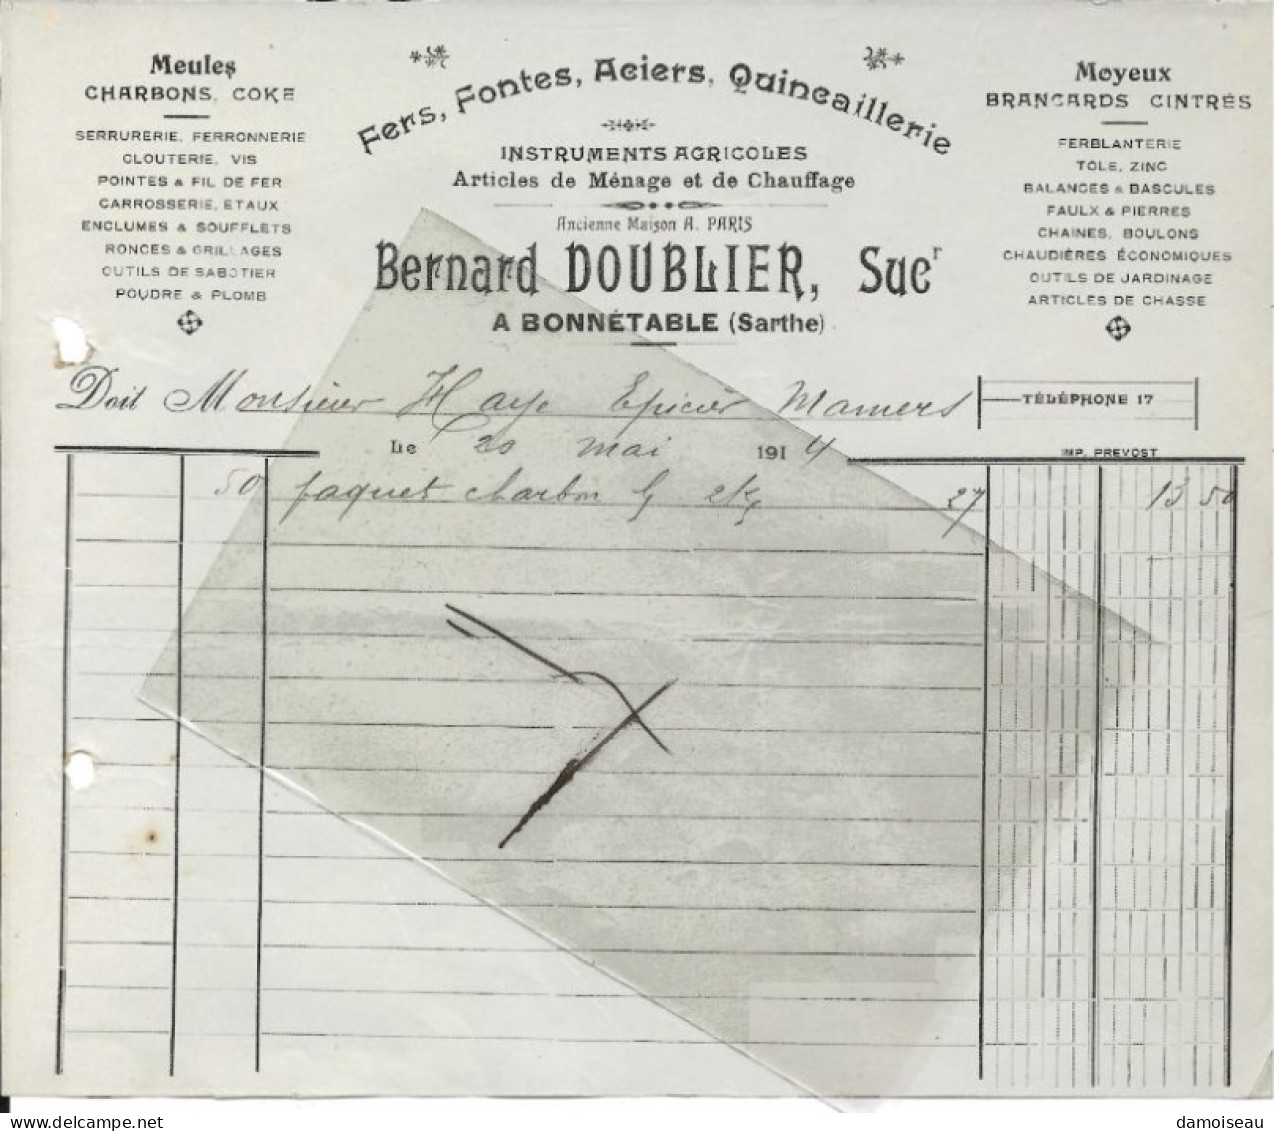 Meules
CHARBONS, COKE
SERRURERIE, FERRONNERIE
CLOUTERIE, VIS
POINTES & FIL DE FER
CARROSSERIE, ETAUX
ENCLUMES & SOUFFLETS
RONCES & GRILLAGES
OUTILS DE SABOTIER
POUDRE & PLOMB
Fers, Fontes, Aciers, Quincaillerie
INSTRUMENTS AGRICOLES
Articles de Ménage et de Chauffage
Ancienne Maison A. PARIS
Bernard DOUBLIER, Sucr
A BONNÉTABLE (Sarthe)
Moyeux
BRANCARDS CINTRÉS
FERBLANTERIE
TOLE, ZINC
BALANCES & BASCULES
FAULX & PIERRES
CHAINES, BOULONS
CHAUDIÈRES ÉCONOMIQUES
OUTILS DE JARDINAGE
ARTICLES DE CHASSE
Doit Monsieur Haye Epicier Mamers
TÉLÉPHONE 17
Le 20 mai 1914
IMP. PREVOST
50 paquet charbon 2Kg 27 13 50
damoiseau